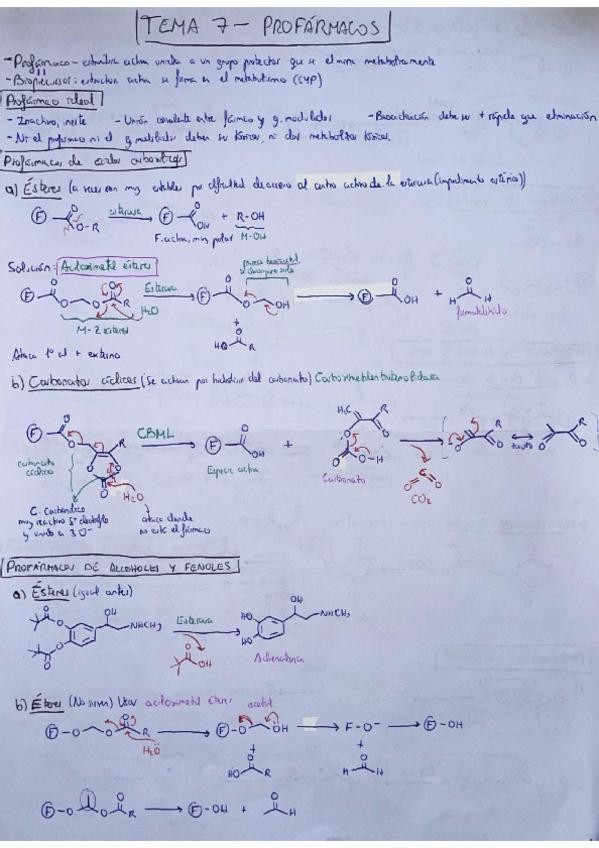 TEMA 7 – PROFÁRMACOS
- Profármaco - estructura activa unida a un grupo protector que se elimina metabólicamente
- Bioprecursor: estructura activa se forma en el metabolismo (CYP)
Profármaco ideal
- Inactivo, inerte - Unión covalente entre fármaco y g. modulador - Bioactivación debe ser + rápida que eliminación
- Ni el profármaco ni el g modulador deben ser tóxicos, ni dar metabolitos tóxicos.
Profármacos de ácidos carboxílicos
a) Ésteres (a veces son muy estables por dificultad de acceso al centro activo de la esterasa (impedimento estérico))
F O O-R esterasa F O OH + R-OH
F. activa, muy polar M-OH
Solución: Aciloximetil ésteres
proceso
F O O O O R Esterasa H2O F O O OH F O OH + O H H
M-2 ésteres + formaldehído
HO O R
Ataca 1º el + externo
b) Carbonatos cíclicos (Se activan por hidrólisis del carbonato) Carboximetilenbutenolidasa
F O O R O O O CBML F O OH + H3C O R O O O-H O O R tauto O O R
carbonato cíclico H2O Especie activa Carbonato CO2
C. Carbonílico muy reactivo δ+ electrófilo y unido a 3 O-
ataca donde no está el fármaco
PROFÁRMACOS DE ALCOHOLES Y FENOLES
a) Ésteres (igual antes)
O O O O OH NHCH3 Esterasa HO HO OH NHCH3
O OH Adrenalina
b) Éteres (No sirven) Usar aciloximetil éteres acetal
F-O O O R H2O F-O OH F-O- F-OH
+ +
HO O R H O H
F-O O O R F-OH + O H